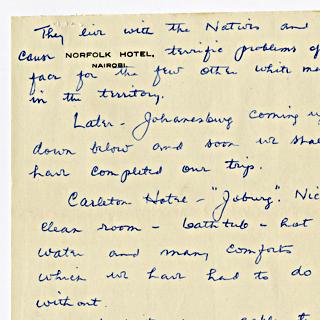 They live with the Natives and
cause NORFOLK HOTEL, terrific problems of
NAIROBI.
face for the few other white me
in the territory.
Later - Johanesburg coming u
down below and soon we shal
have completed our trip.
Carleton Hotel - "Joburg". Nic
clean room - bath tub - hot
water and many comforts
which we have had to do
without.